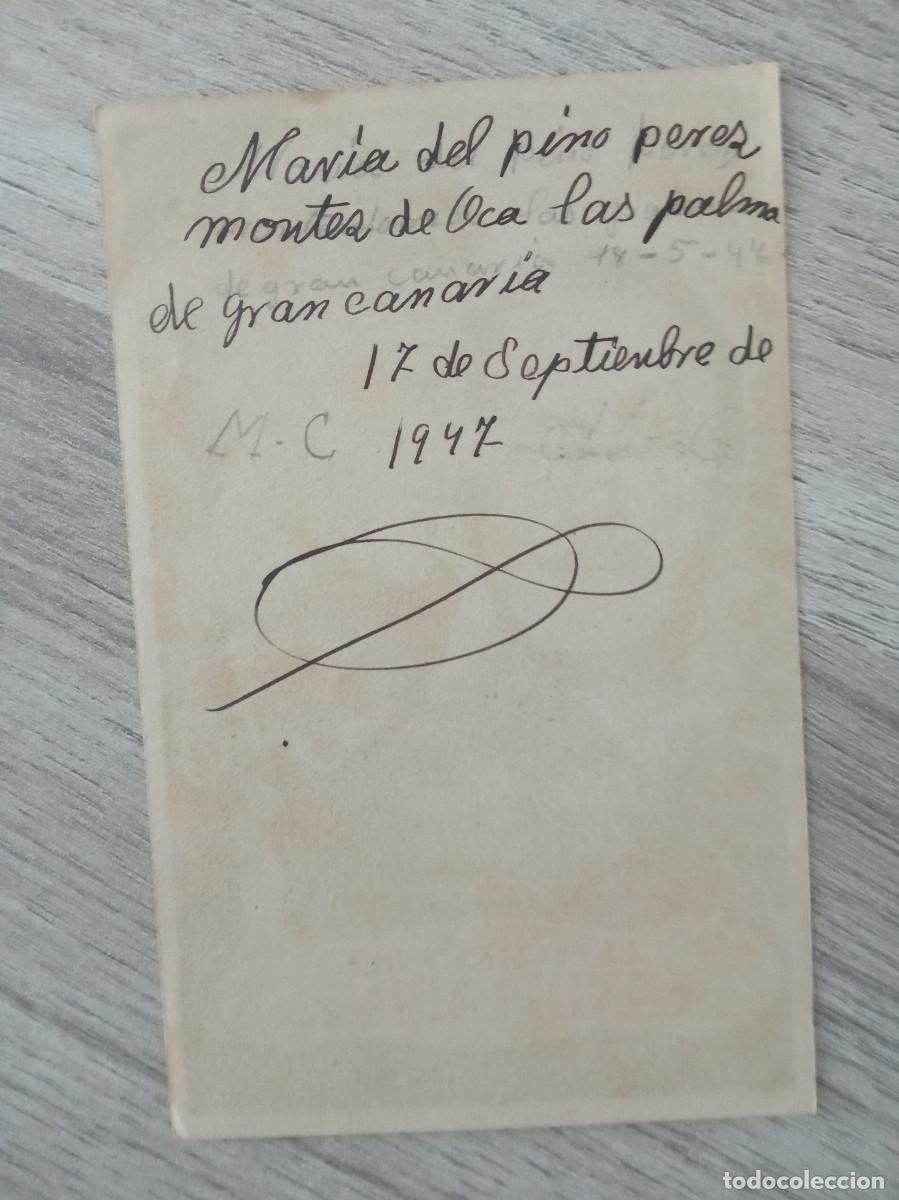 Maria del pino perez
montez de Oca las palma
de gran canaria 18-5-47
de gran canaria
17 de Septienbre de
M-C 1947
todocoleccion